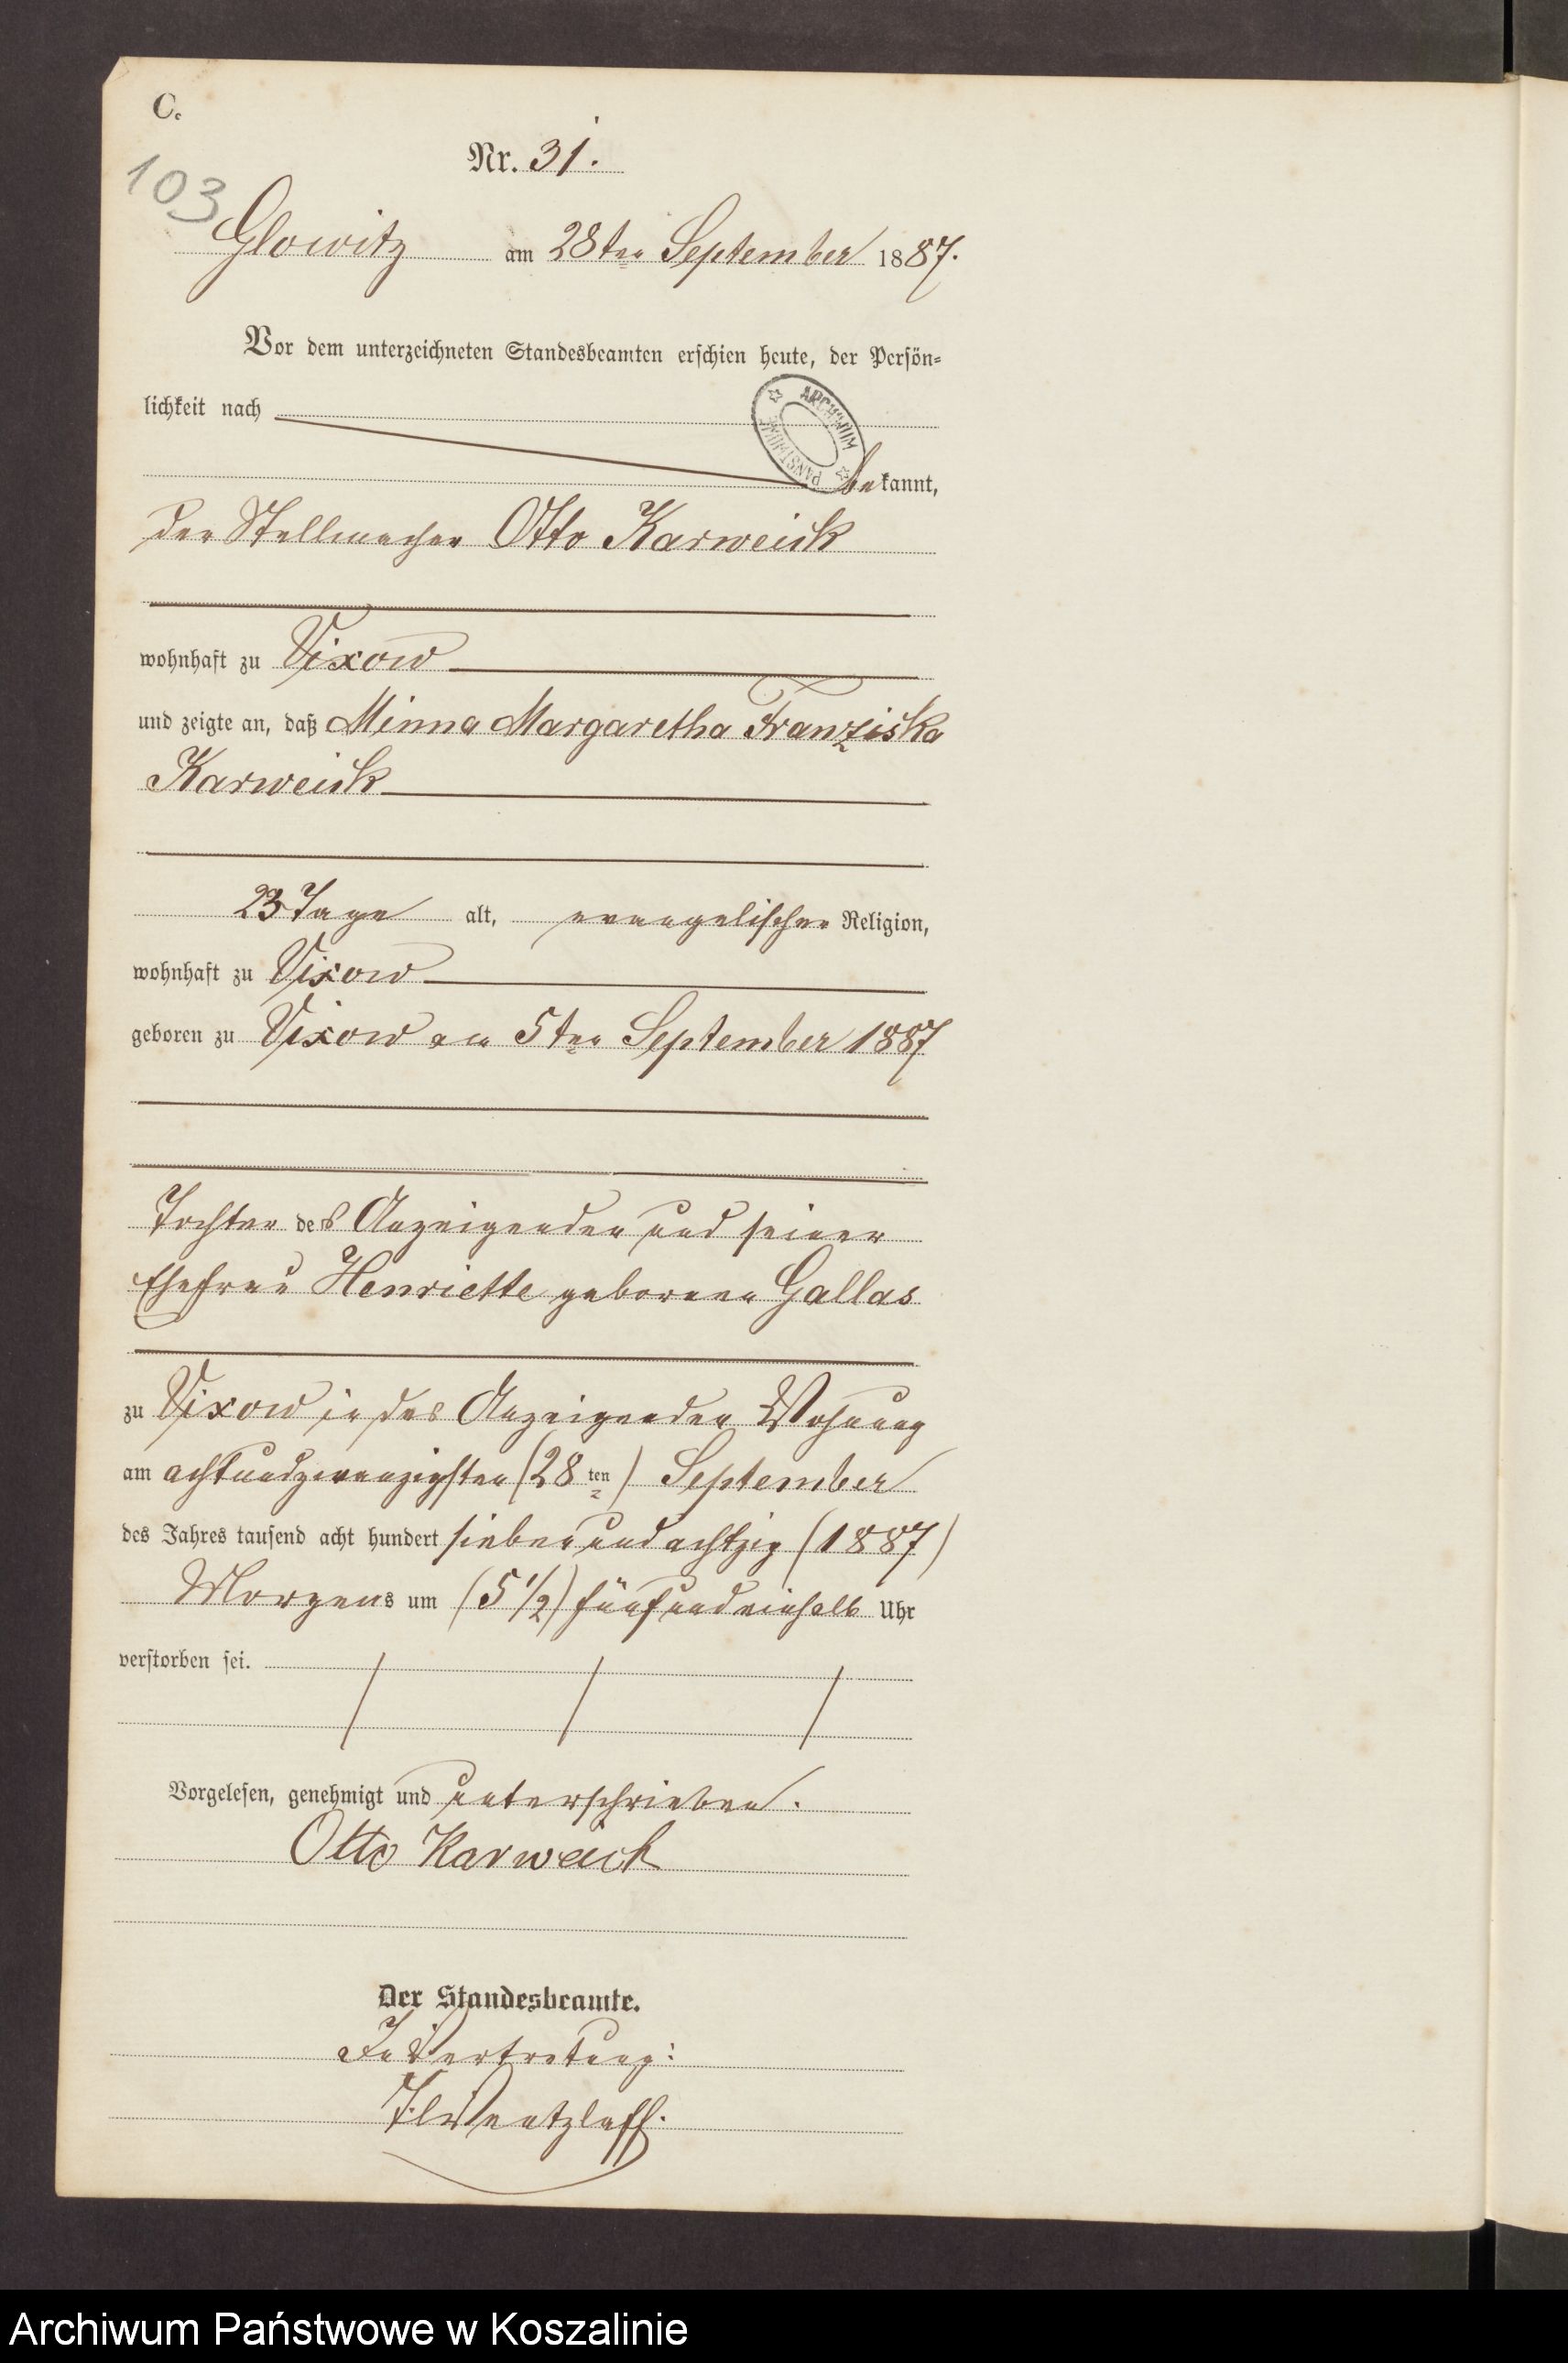 C.
Nr. 31.
103
Glowitz am 28ten September 1887.
Vor dem unterzeichneten Standesbeamten erschien heute, der Persön-
lichkeit nach
ARCHIWUM PAŃSTWOWE
bekannt,
der Stellmacher Otto Karweick
wohnhaft zu Vixow
und zeigte an, daß Minna Margaretha Franziska
Karweick
23 Tage alt, evangelischer Religion,
wohnhaft zu Vixow
geboren zu Vixow am 5ten September 1887
Tochter des Anzeigenden und seiner
Ehefrau Henriette geborene Gallas
zu Vixow in des Anzeigenden Wohnung
am achtundzwanzigsten (28ten) September
des Jahres tausend acht hundert siebenundachtzig (1887)
Morgens um (5 1/2) fünfundeinhalb Uhr
verstorben sei.
Vorgelesen, genehmigt und unterschrieben.
Otto Karweick
Der Standesbeamte.
In Vertretung:
Wentzlaff.
Archiwum Państwowe w Koszalinie